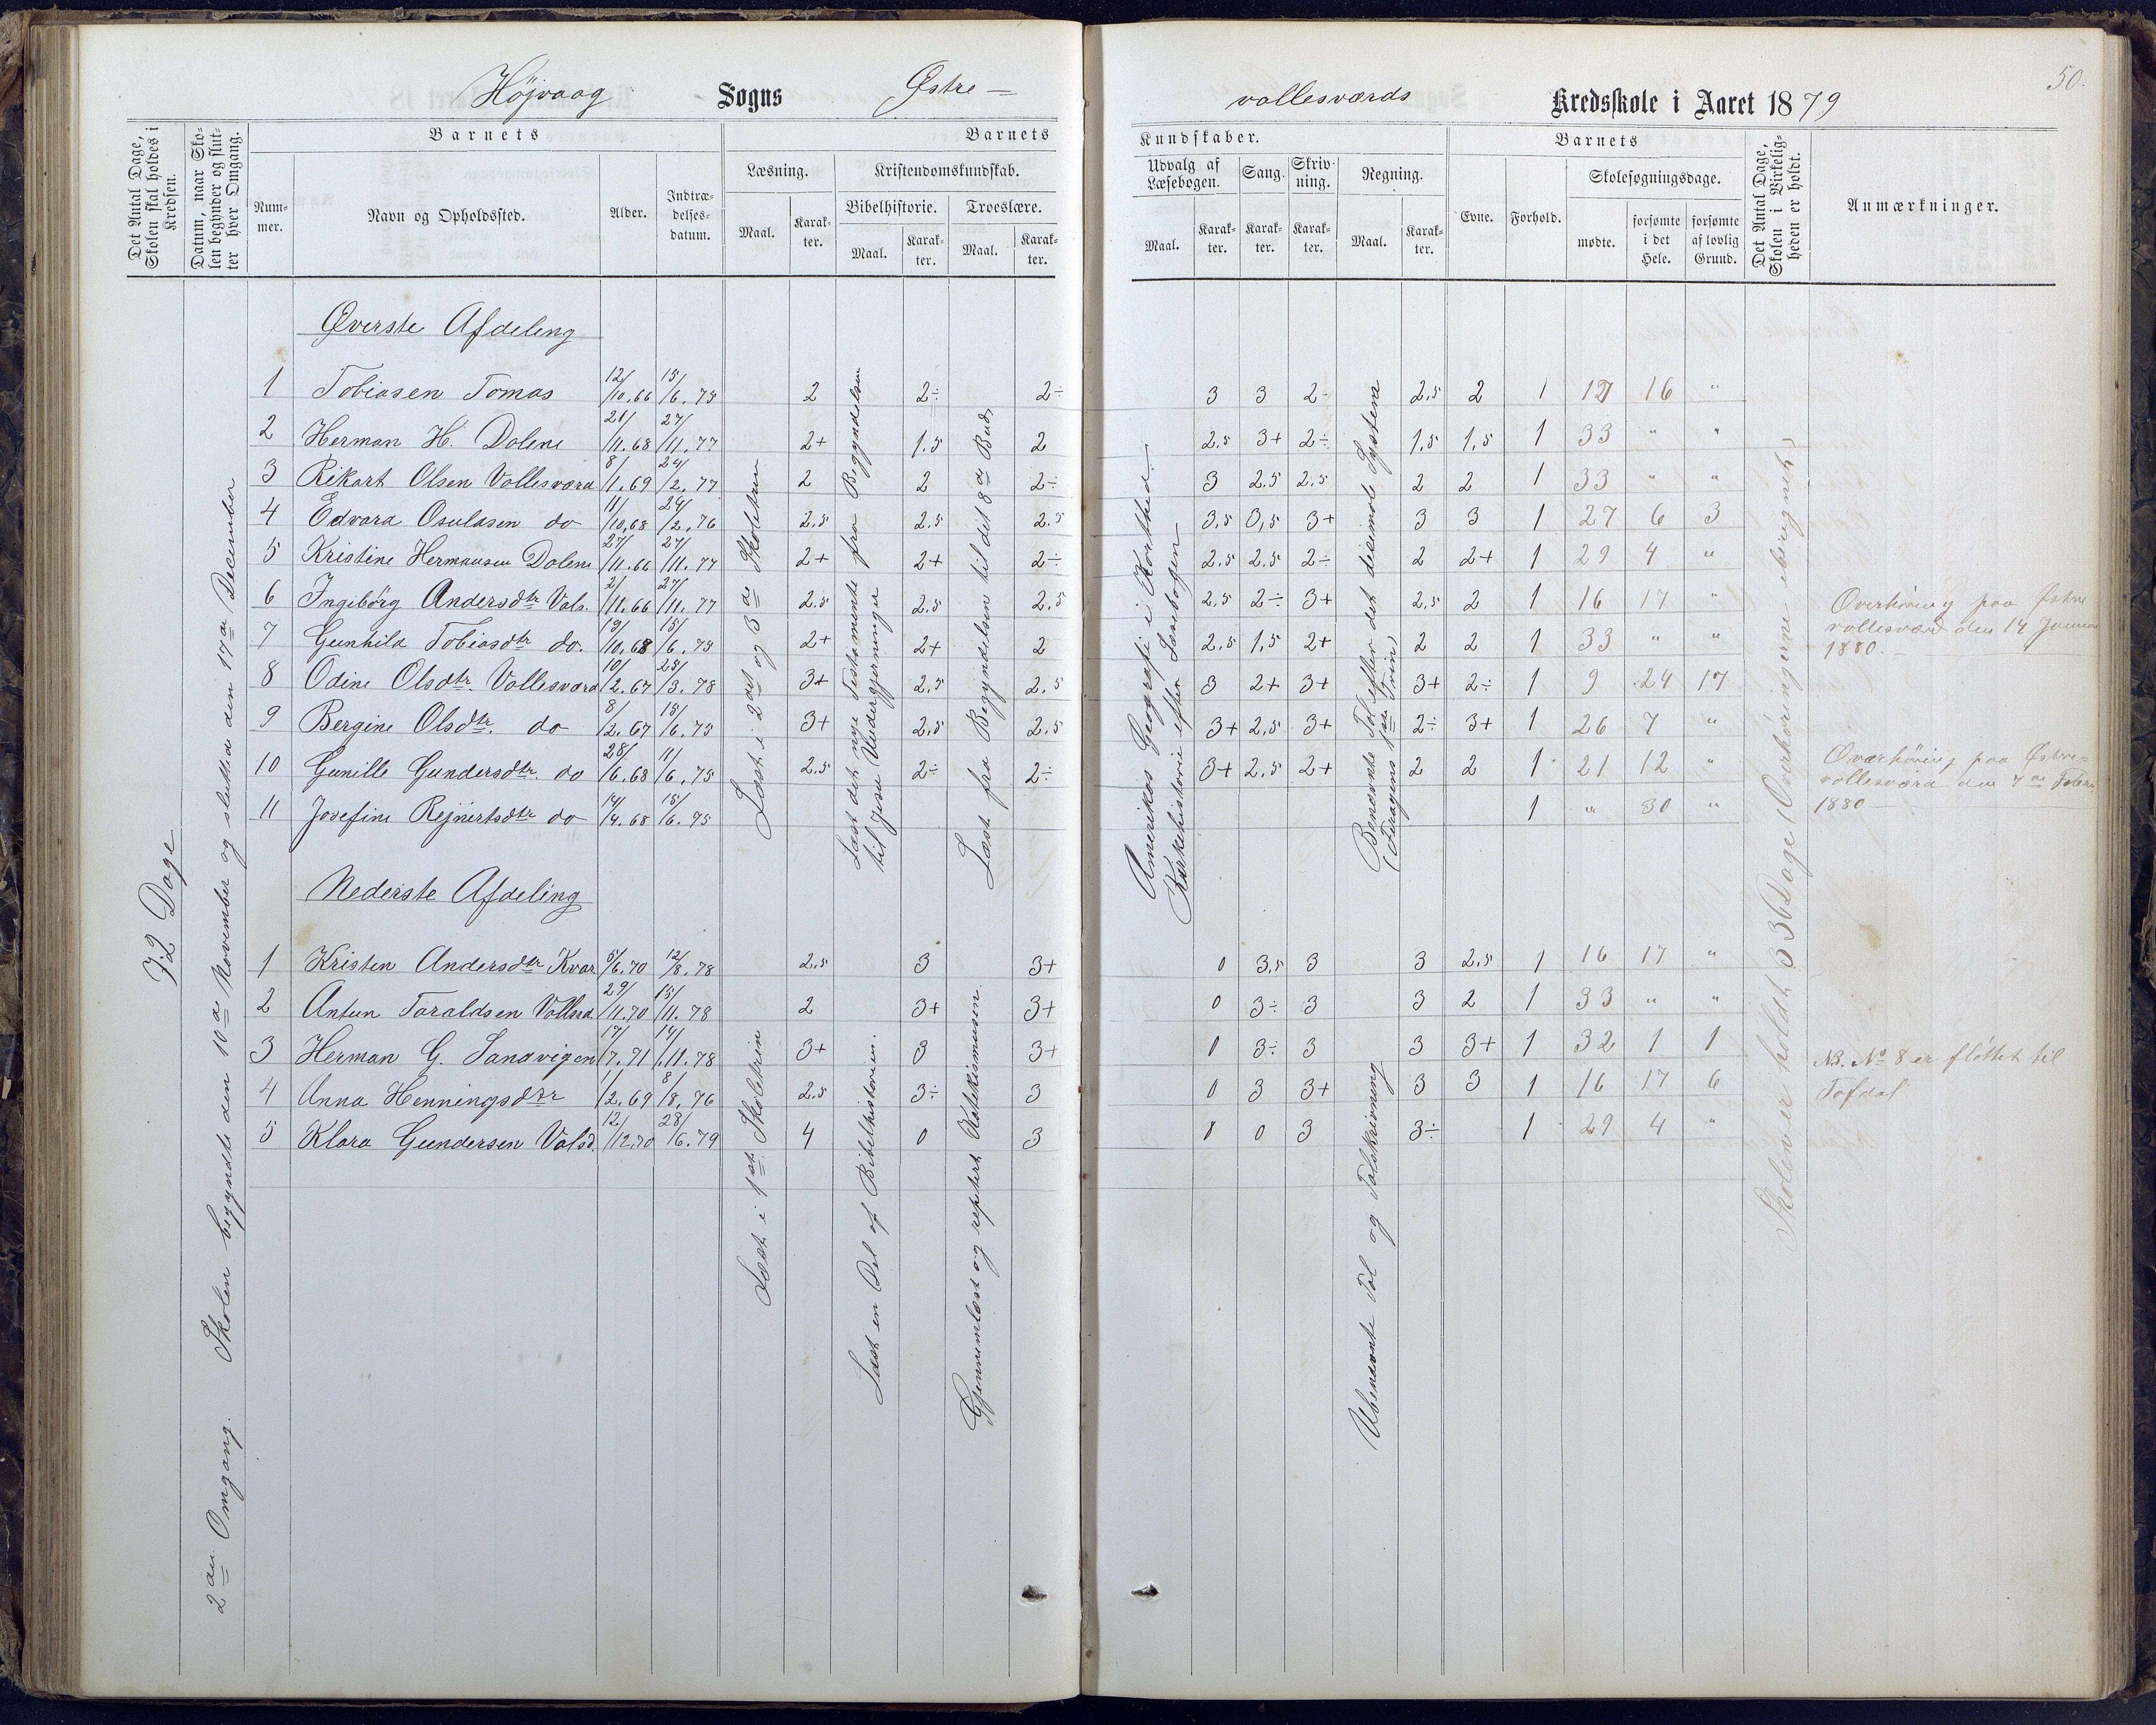 50.
Højvaag Sogns Østre- vollesværds Kredsskole i Aaret 1879
Det Antal Dage, Skolen skal holdes i Kredsen.
Datum, naar Skolen begynder og slutter hver Omgang.
Barnets
Num-mer.
Navn og Opholdssted.
Alder.
Indtræ-delses-datum.
Barnets
Læsning.
Maal.
Karak-ter.
Kristendomskundskab.
Bibelhistorie.
Maal.
Karak-ter.
Troeslære.
Maal.
Karak-ter.
Kundskaber.
Udvalg af Læsebogen.
Maal.
Karak-ter.
Sang.
Karak-ter.
Skriv-ning.
Karak-ter.
Regning.
Maal.
Karak-ter.
Barnets
Evne.
Forhold.
Skolesøgningsdage.
mødte.
forsømte i det Hele.
forsømte af lovlig Grund.
Det Antal Dage, Skolen i Virkelig-heden er holdt.
Anmærkninger.
72 Dage
2den Omgang. Skolen begyndte den 10de November og sluttede den 17de December
Øverste Afdeling
1 Tobiasen Tomas 12/10.66 15/6.75 2 2÷ 2÷ 3 3 2- 2,5 2 1 17 16 "
2 Herman H. Dolene 21/11.68 27/11.77 2+ 1.5 2 2.5 3+ 2÷ 1,5 1,5 1 33 " "
3 Rikart Olsen Vollesværd 8/1.69 24/2.77 2 2 2÷ 3 2.5 2.5 2 2 1 33 " "
4 Edvard Osulasen do 11/10.68 24/2.76 2.5 2.5 2.5 3.5 3,5 3+ 3 3 1 27 6 3
5 Kristine Hermansen Dolene 27/11.66 27/11.77 2+ 2+ 2÷ 2.5 2.5 2÷ 2 2+ 1 29 4 "
6 Ingibørg Andersdtr Vols. 2/11.66 27/11.77 2.5 2.5 2.5 2.5 2÷ 3+ 2.5 2 1 16 17 "
7 Gunhild Tobiasdtr do. 19/10.68 15/6.75 2+ 2+ 2 2.5 1,5 2+ 2 2 1 33 " "
8 Odine Olsdtr. Vollesværd 10/2.67 25/3.78 3+ 2.5 2.5 3 2+ 3+ 3+ 2÷ 1 9 24 17
9 Bergine Olsdtr. do 8/2.67 15/6.75 3+ 2.5 2.5 3+ 2.5 3+ 2÷ 3+ 1 26 7 "
10 Gunille Gundersdtr. do 28/6.68 11/6.75 2.5 2÷ 2÷ 3+ 2.5 2+ 2 2 1 21 12 "
11 Josefine Rejnertsdtr do 14/4.68 15/6.75 1 " 30 "
Læst i 2det og 3de Skoletrin
Læst det nye Testamente fra Begyndelsen til Jesu Undergjerninger
Læst fra Begyndelsen til det 8de Bud,
Amerikas Geografi i Korthed.
Kirkehistorie efter Læsebogen
Benævnte Tal efter det desimale System
(Foragens 1ste Trin)
Overhøring paa Østre vollesværd den 14 Januar 1880.
Overhøring paa Østre-vollesværd den 7de Febru 1880
Nederste Afdeling
1 Kristen Andersdtr Kvar 5/6.70 12/8.78 2.5 3 3+ 0 3.5 3 3 2.5 1 16 17 "
2 Antun Taraldsen Vollsd 29/11.70 15/11.78 2 3+ 3+ 0 3÷ 3 3 2 1 33 " "
3 Herman G. Sandvigen 17/7.71 14/11.78 3+ 3 3+ 0 3÷ 3 3 3+ 1 32 1 1
4 Anna Henningsdtr 1/2.69 8/8.76 2.5 3÷ 3 0 3 3+ 3 3 1 16 17 6
5 Klara Gundersen Volsd. 12/12.70 28/6.79 4 0 3 0 0 3 3÷ 1 29 4 "
Læst i 1ste Skoletrin
Læst en Del af Bibelhistorien.
Gjennemlæst og repitert Katekismusen
Ubenævnte Tal og Talskrivning
Skolen er holdt 336 Dage (Overhøringerne iberegnet)
NB. No 8 er flöttet til Tofdal